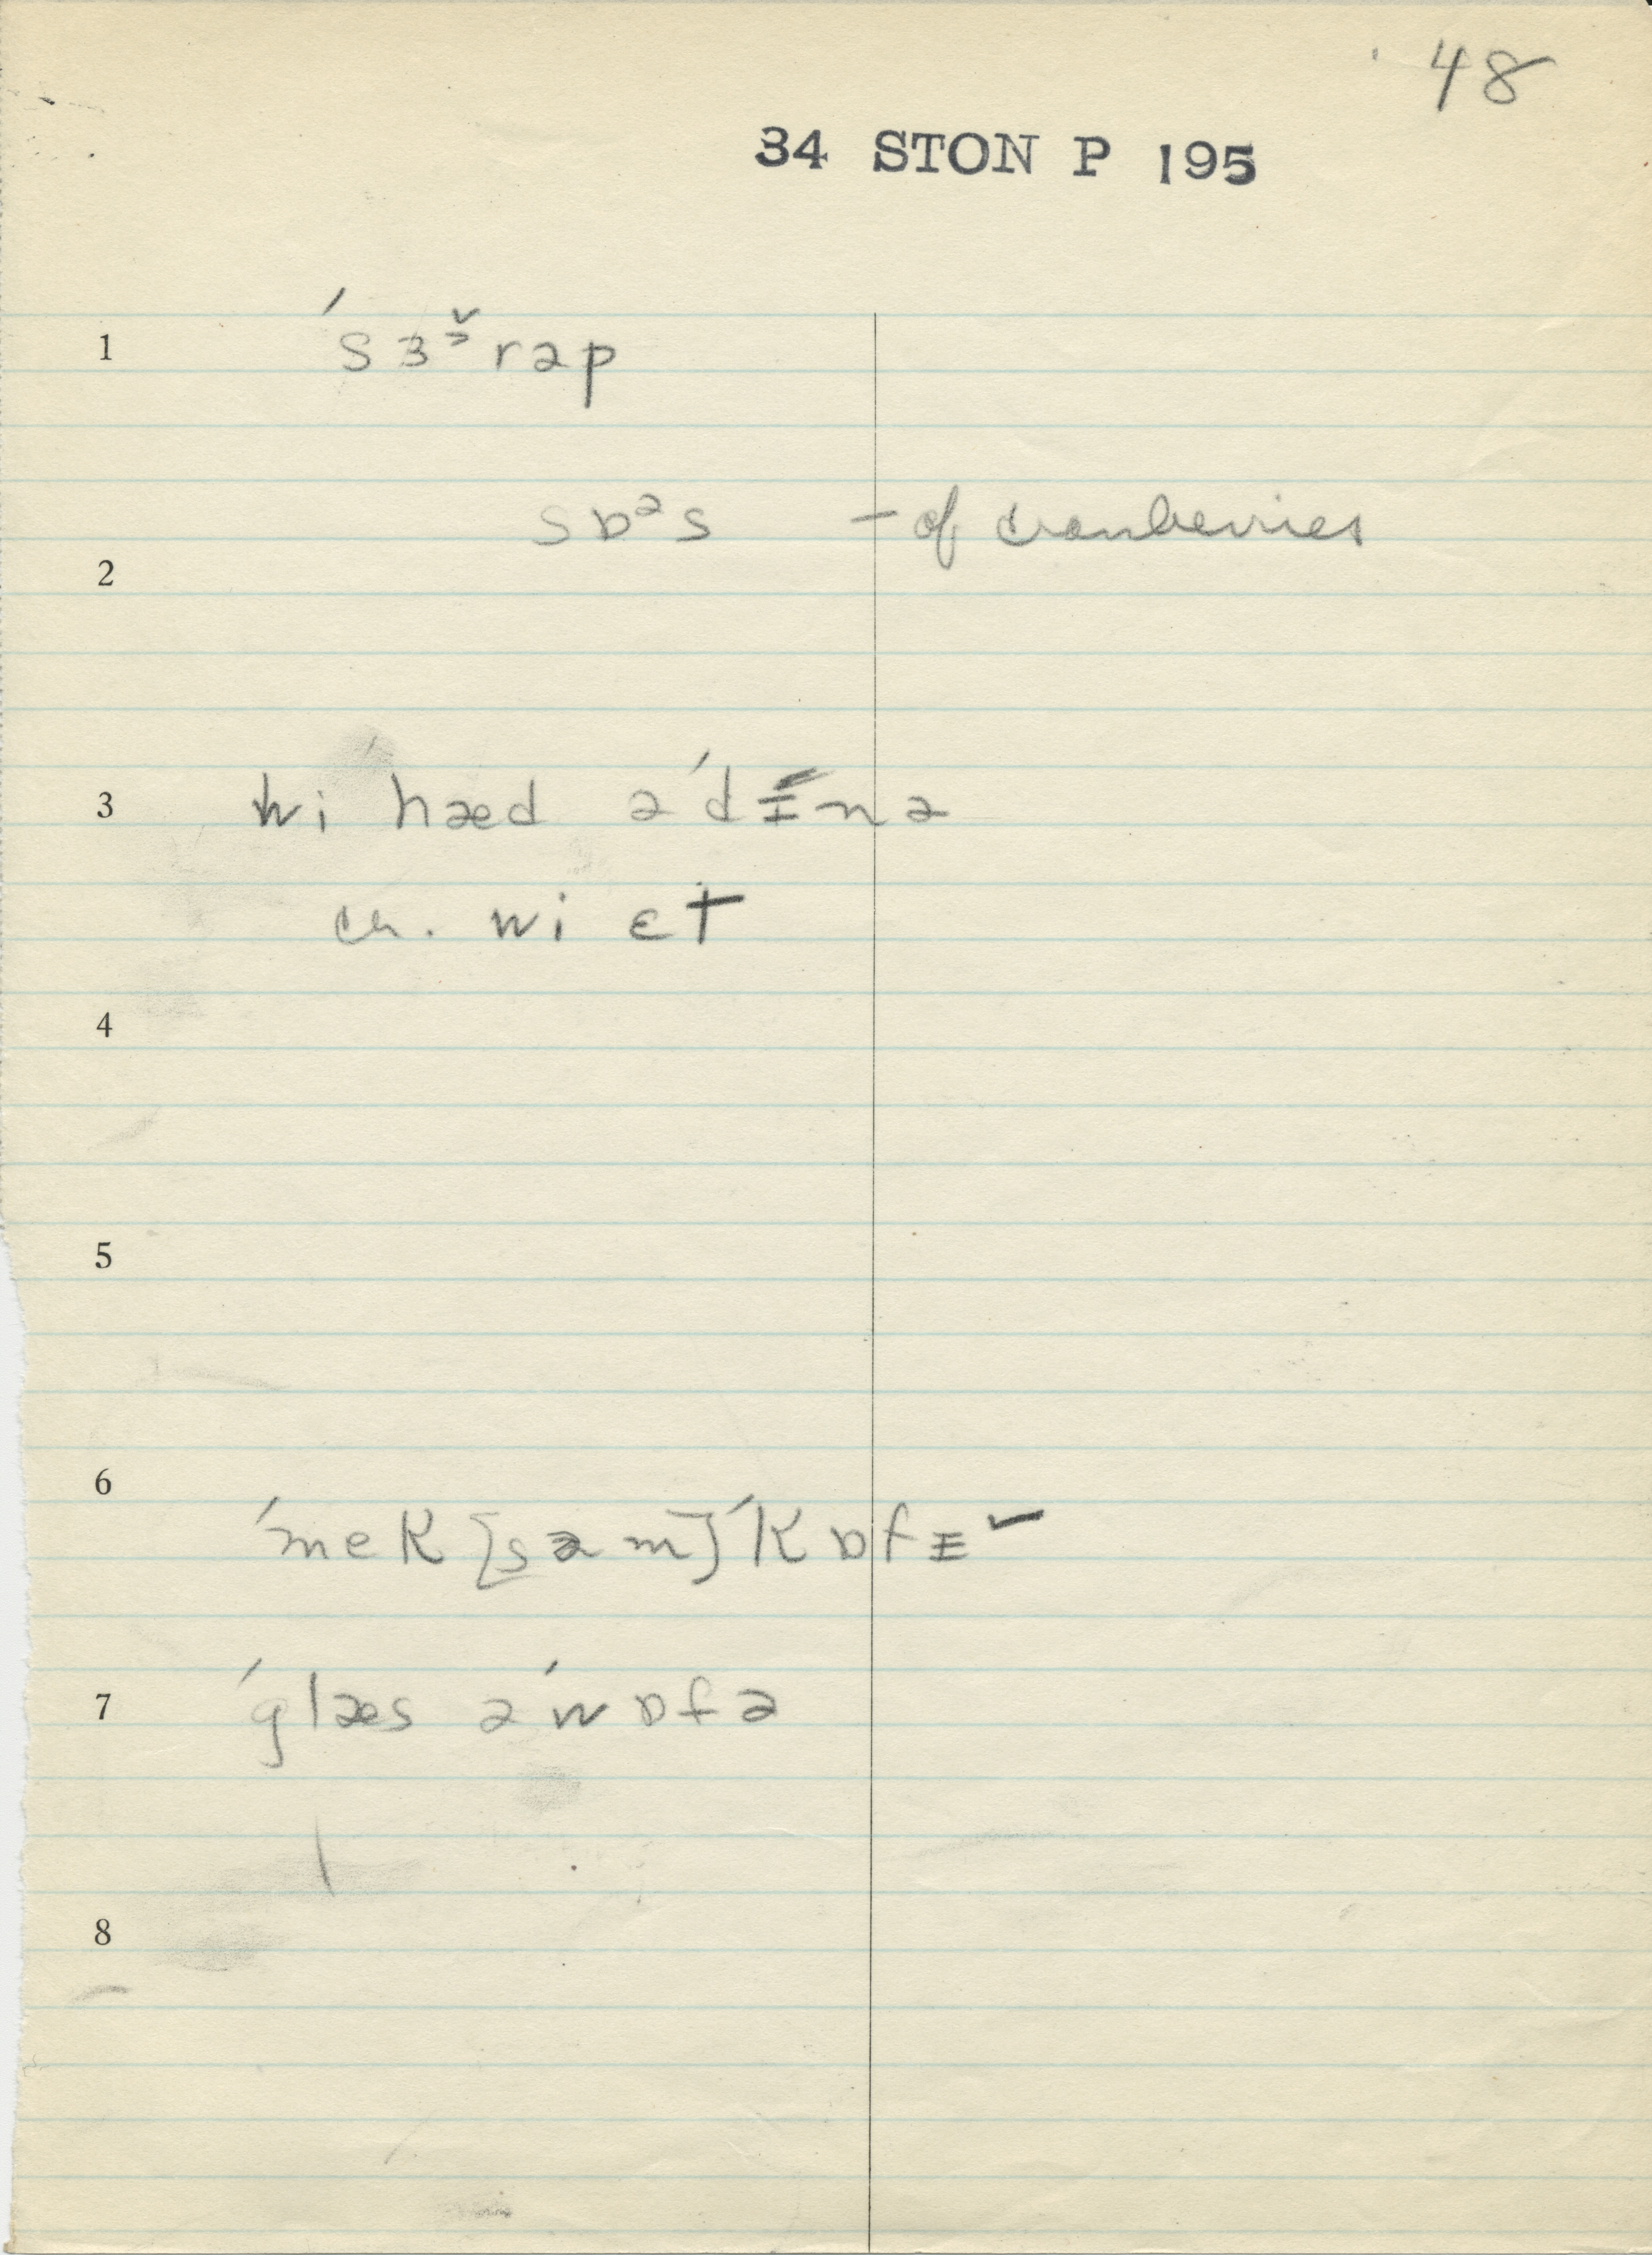 48
34 STON P 195
1 ˈsɜ˞ˇrəp
2 sɒᵊs – of cranberries
3 wi hæd əˈdɪnə
cr. wi ɛt
4
5
6 ˈmek [səm] ˈkɒfɪˇ
7 ˈglæs əˈwɒfə
8